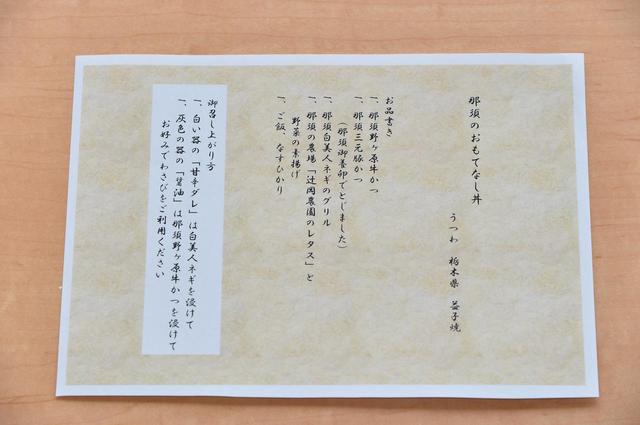 那須のおもてなし丼
うつわ 栃木県 益子焼
お品書き
一、那須野ヶ原牛かつ
一、那須三元豚かつ
(那須御養卵でとじました)
一、那須白美人ネギのグリル
一、那須の農場「辻岡農園のレタス」と
野菜の素揚げ
一、ご飯、なすひかり
御召し上がり方
一、白い器の「甘辛ダレ」は白美人ネギを浸けて
一、灰色の器の「醤油」は那須野ヶ原牛かつを浸けて
お好みでわさびをご利用ください